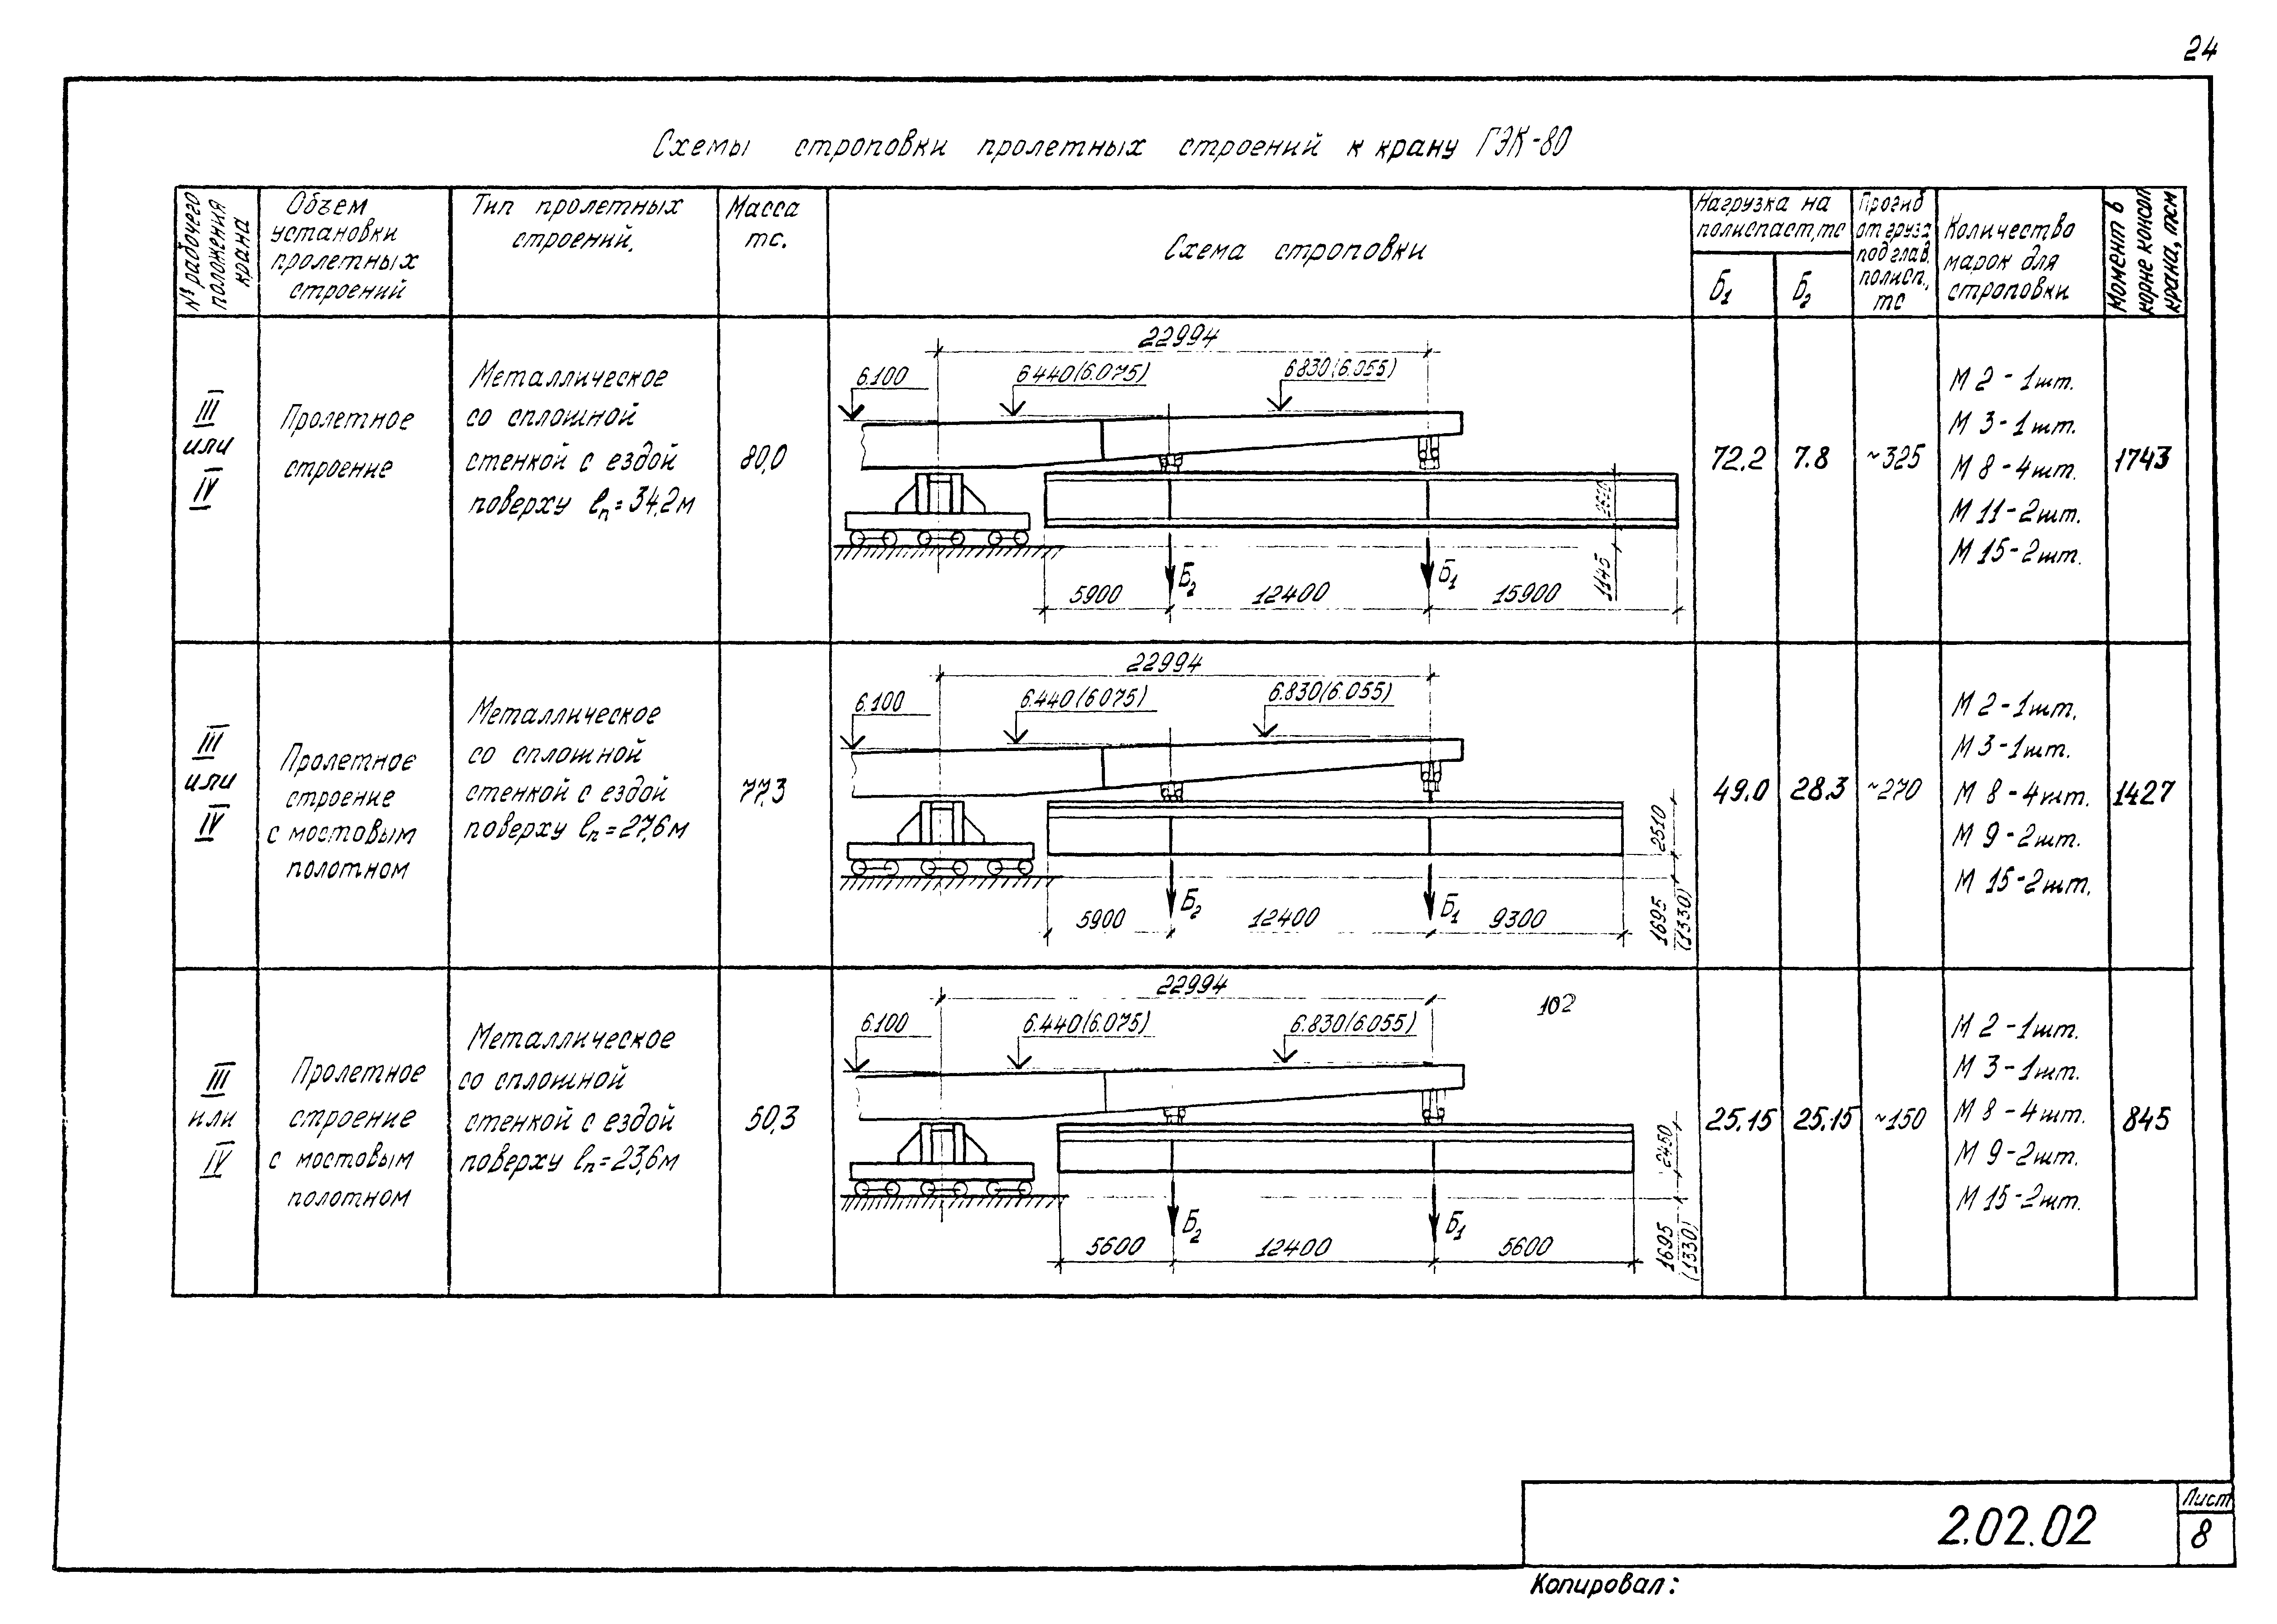 24
Схемы строповки пролетных строений к крану ГЭК-80
№ рабочего
положения
крана
Объем
установки
пролетных
строений
Тип пролетных
строений.
Масса
тс.
Схема строповки
Нагрузка на
полиспаст, тс
Б1
Б2
Прогиб
от груза
под глав.
полисп.,
тс
Количество
марок для
строповки
Момент в
корне консол
крана, тсм
III
или
IV
Пролетное
строение
Металлическое
со сплошной
стенкой с ездой
поверху ℓп=34,2м
80,0
22994
6.100
6.440(6.075)
6.830(6.055)
1145
Б2
Б1
5900
12400
15900
72.2
7.8
~325
М 2 - 1шт.
М 3 - 1шт.
М 8 - 4шт.
М 11 - 2шт.
М 15 - 2шт.
1743
III
или
IV
Пролетное
строение
с мостовым
полотном
Металлическое
со сплошной
стенкой с ездой
поверху ℓп=27,6м
77,3
22994
6.100
6.440(6075)
6.830(6.055)
2510
1695
(1330)
Б2
Б1
5900
12400
9300
49.0
28.3
~270
М 2 - 1шт.
М 3 - 1шт.
М 8 - 4шт.
М 9 - 2шт.
М 15 - 2шт.
1427
III
или
IV
Пролетное
строение
с мостовым
полотном
Металлическое
со сплошной
стенкой с ездой
поверху ℓп=23,6м
50,3
22994
102
6.100
6.440(6.075)
6.830(6.055)
2450
1695
(1330)
Б2
Б1
5600
12400
5600
25.15
25.15
~150
М 2 - 1шт.
М 3 - 1шт.
М 8 - 4шт.
М 9 - 2шт.
М 15 - 2шт.
845
2.02.02
Лист
8
Копировал: